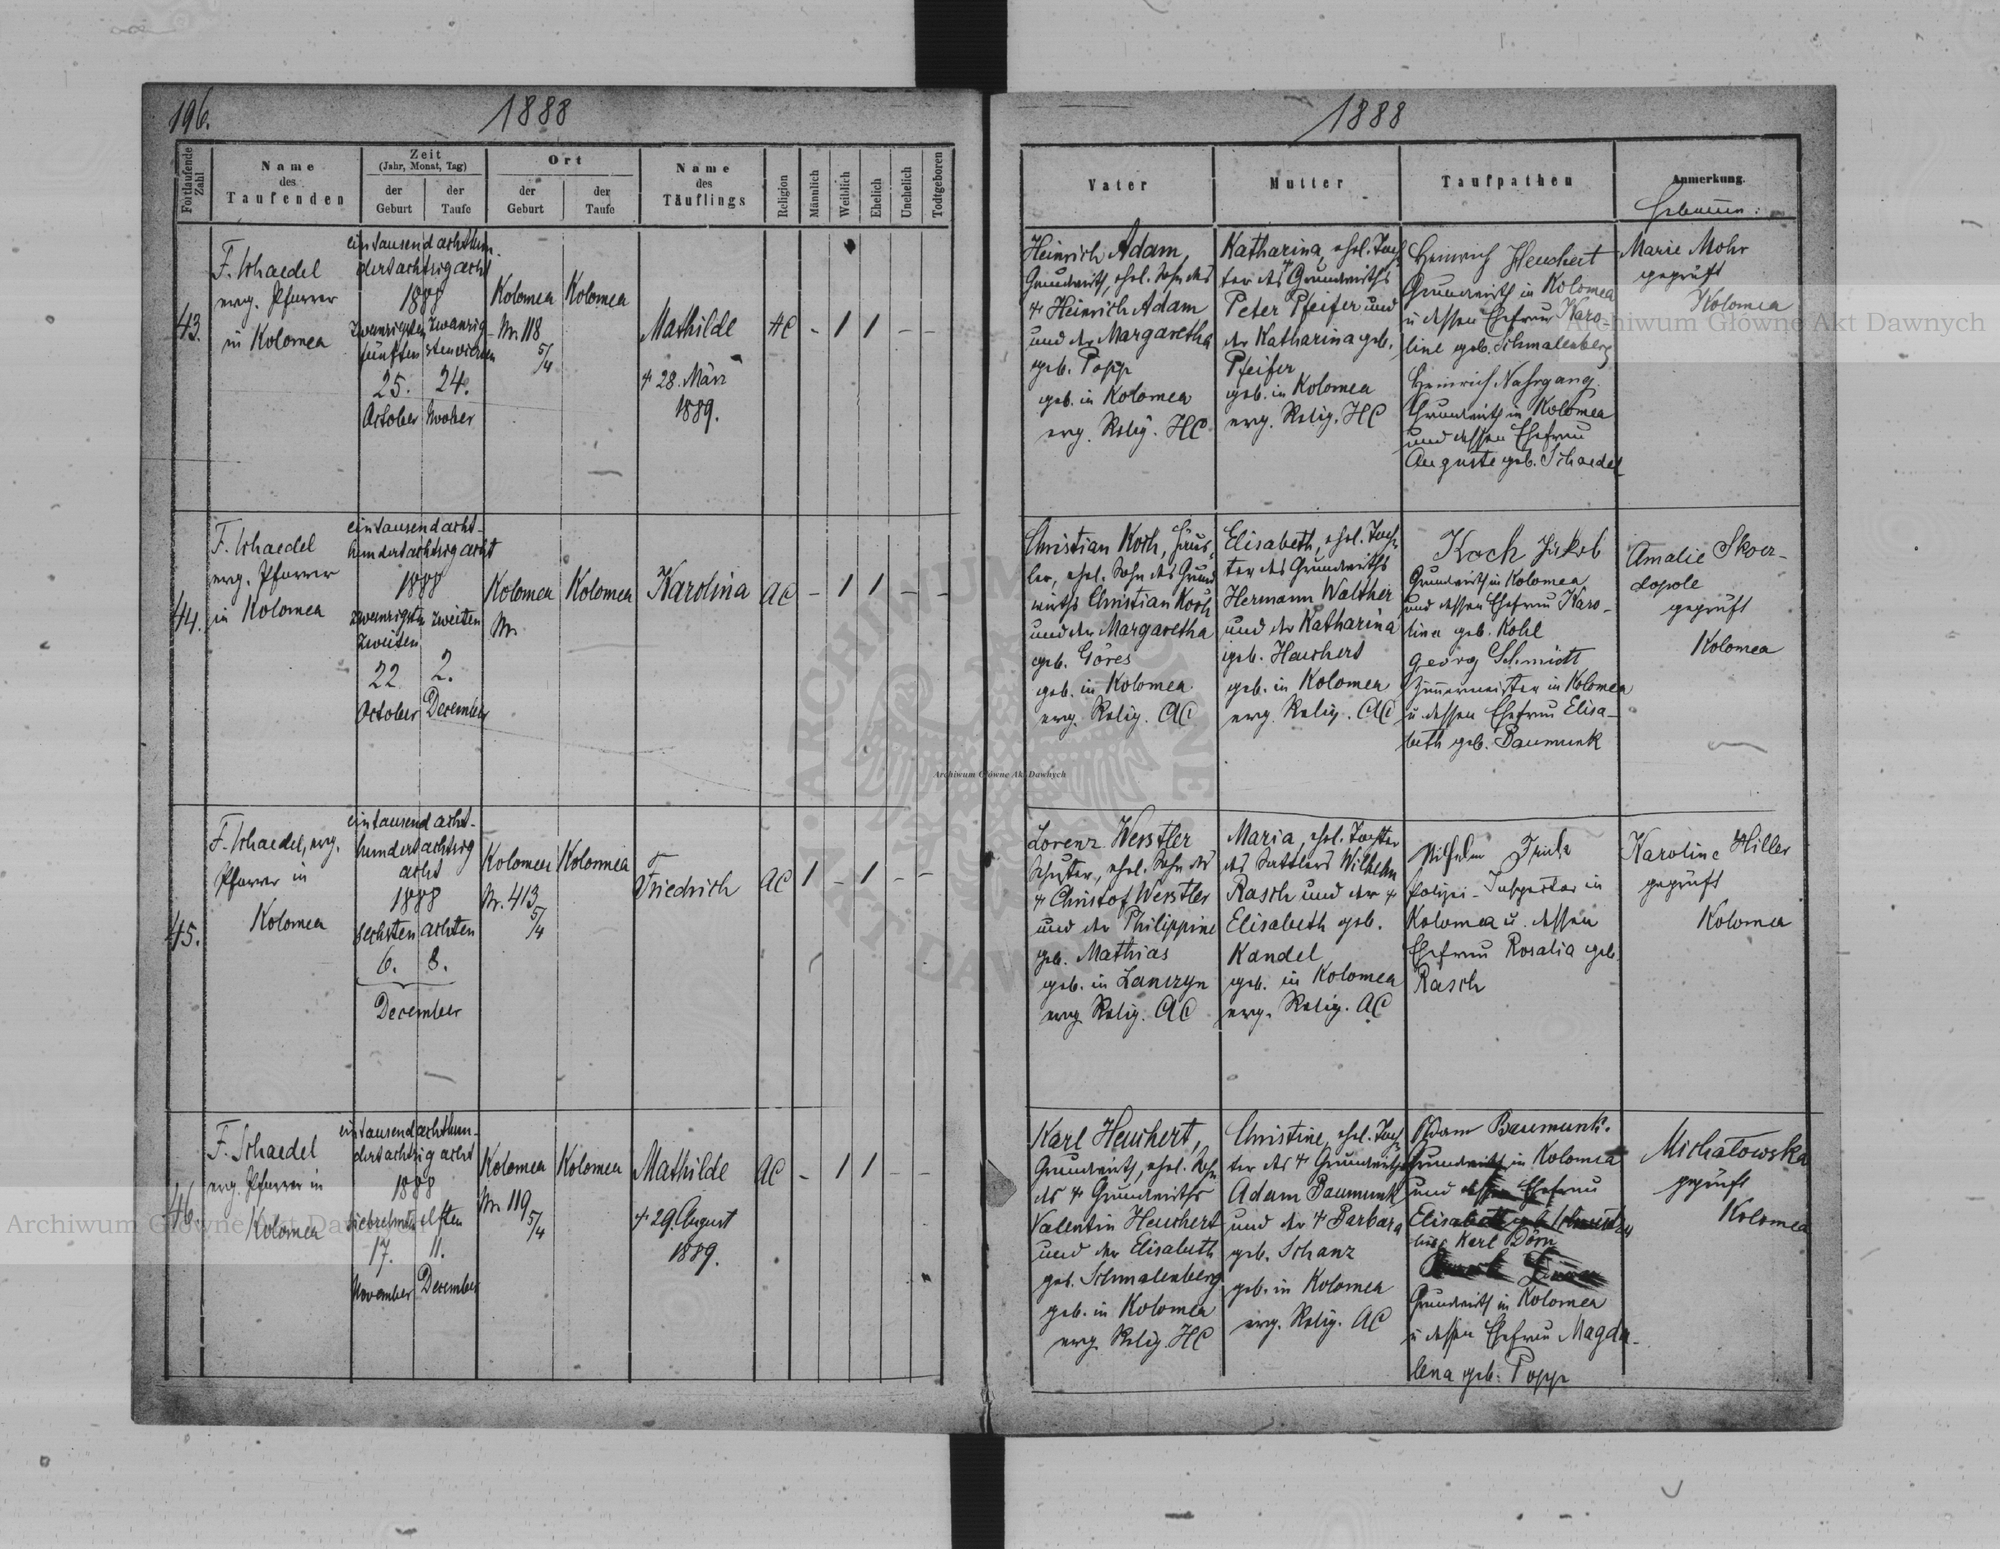 196.
1888
Fortlaufende Zahl
Name
des
Taufenden
Zeit
(Jahr, Monat, Tag)
der
Geburt
der
Taufe
Ort
der
Geburt
der
Taufe
Name
des
Täuflings
Religion
Männlich
Weiblich
Ehelich
Unehelich
Todtgeboren
43.
F. Schaedel
evg. Pfarrer
in Kolomea
eintausend achthun-
dertachtzig acht
1888
zwanzigsten
fünften
25.
October
24.
Kolomea
Nr. 118
5/4
Kolomea
Mathilde
† 28. März
1889.
HC
- 1 1 - -
44.
F. Schaedel
evg. Pfarrer
in Kolomea
eintausend acht-
hundertachtzig acht
1888
zwanzigsten zweiten
zweiten
22. 2.
October December
Kolomea
Nr.
Kolomea
Karolina
AC
- 1 1 - -
45.
F. Schaedel, evg.
Pfarrer in
Kolomea
eintausend acht-
hundertachtzig
acht
1888
sechsten achten
6. 8.
December
Kolomea
Nr. 413
5/4
Kolomea
Friedrich
AC
1 - 1 - -
46.
F. Schaedel
evg. Pfarrer in
Kolomea
eintausend achthun-
dertachtzig acht
1888
siebzehnten elften
17. 11.
November December
Kolomea
Nr. 119
5/4
Kolomea
Mathilde
† 29. August
1889.
AC
- 1 1 - -
1888
Vater
Mutter
Taufpathen
Anmerkung.
Hebamme:
Heinrich Adam,
Grundwirth, ehel. Sohn des
† Heinrich Adam
und der Margaretha
geb. Popp
geb. in Kolomea
evg. Relig. HC
Katharina, ehel. Toch
ter des † Grundwirths
Peter Pfeifer und
der Katharina geb.
Pfeifer
geb. in Kolomea
evg. Relig. HC
Heinrich Heuchert
Grundwirth in Kolomea
u dessen Ehefrau Karo-
line geb. Schmalenberg
Heinrich Nahrgang
Grundwirth in Kolomea
und dessen Ehefrau
Auguste geb. Schaedel
Marie Mohr
geprüft
Kolomea
Christian Koch, Häus-
ler, ehel. Sohn des Grund
wirths Christian Koch
und der Margaretha
geb. Göres
geb. in Kolomea
evg. Relig. AC
Elisabeth, ehel. Toch
ter des Grundwirths
Hermann Walther
und der Katharina
geb. Heuchert
geb. in Kolomea
evg. Relig. AC
Koch Jakob
Grundwirth in Kolomea
und dessen Ehefrau Karo-
lina geb. Kohl
Georg Schmidt
Zimmermeister in Kolomea
u. dessen Ehefrau Elisa-
beth geb. Baumunk
Amalie Skoer-
dopole
geprüft
Kolomea
Lorenz Werstler
Schuster, ehel. Sohn des
† Christof Werstler
und der Philippine
geb. Mathias
geb. in Lanczyn
evg. Relig. AC
Maria, ehel. Tochter
des Sattlers Wilhelm
Rasch und der †
Elisabeth geb.
Kandel
geb. in Kolomea
evg. Relig. AC
Wilhelm
Polizei-Inspector in
Kolomea u. dessen
Ehefrau Rosalia geb.
Rasch
Karoline Hiller
geprüft
Kolomea
Karl Heuchert,
Grundwirth, ehel. Sohn
des † Grundwirths
Valentin Heuchert
und der Elisabeth
geb. Schmalenberg
geb. in Kolomea
evg. Relig. HC
Christine, ehel. Toch
ter des † Grundwirths
Adam Baumunk
und der † Barbara
geb. Schanz
geb. in Kolomea
evg. Relig. AC
Adam Baumunk
Grundwirth in Kolomea
und dessen Ehefrau
Elisabeth geb.
Karl Dörn
Grundwirth in Kolomea
u dessen Ehefrau Magda-
lena geb. Popp
Michałowska
geprüft
Kolomea
Archiwum Główne Akt Dawnych
Archiwum Główne Akt Dawnych
Archiwum Główne Akt Dawnych